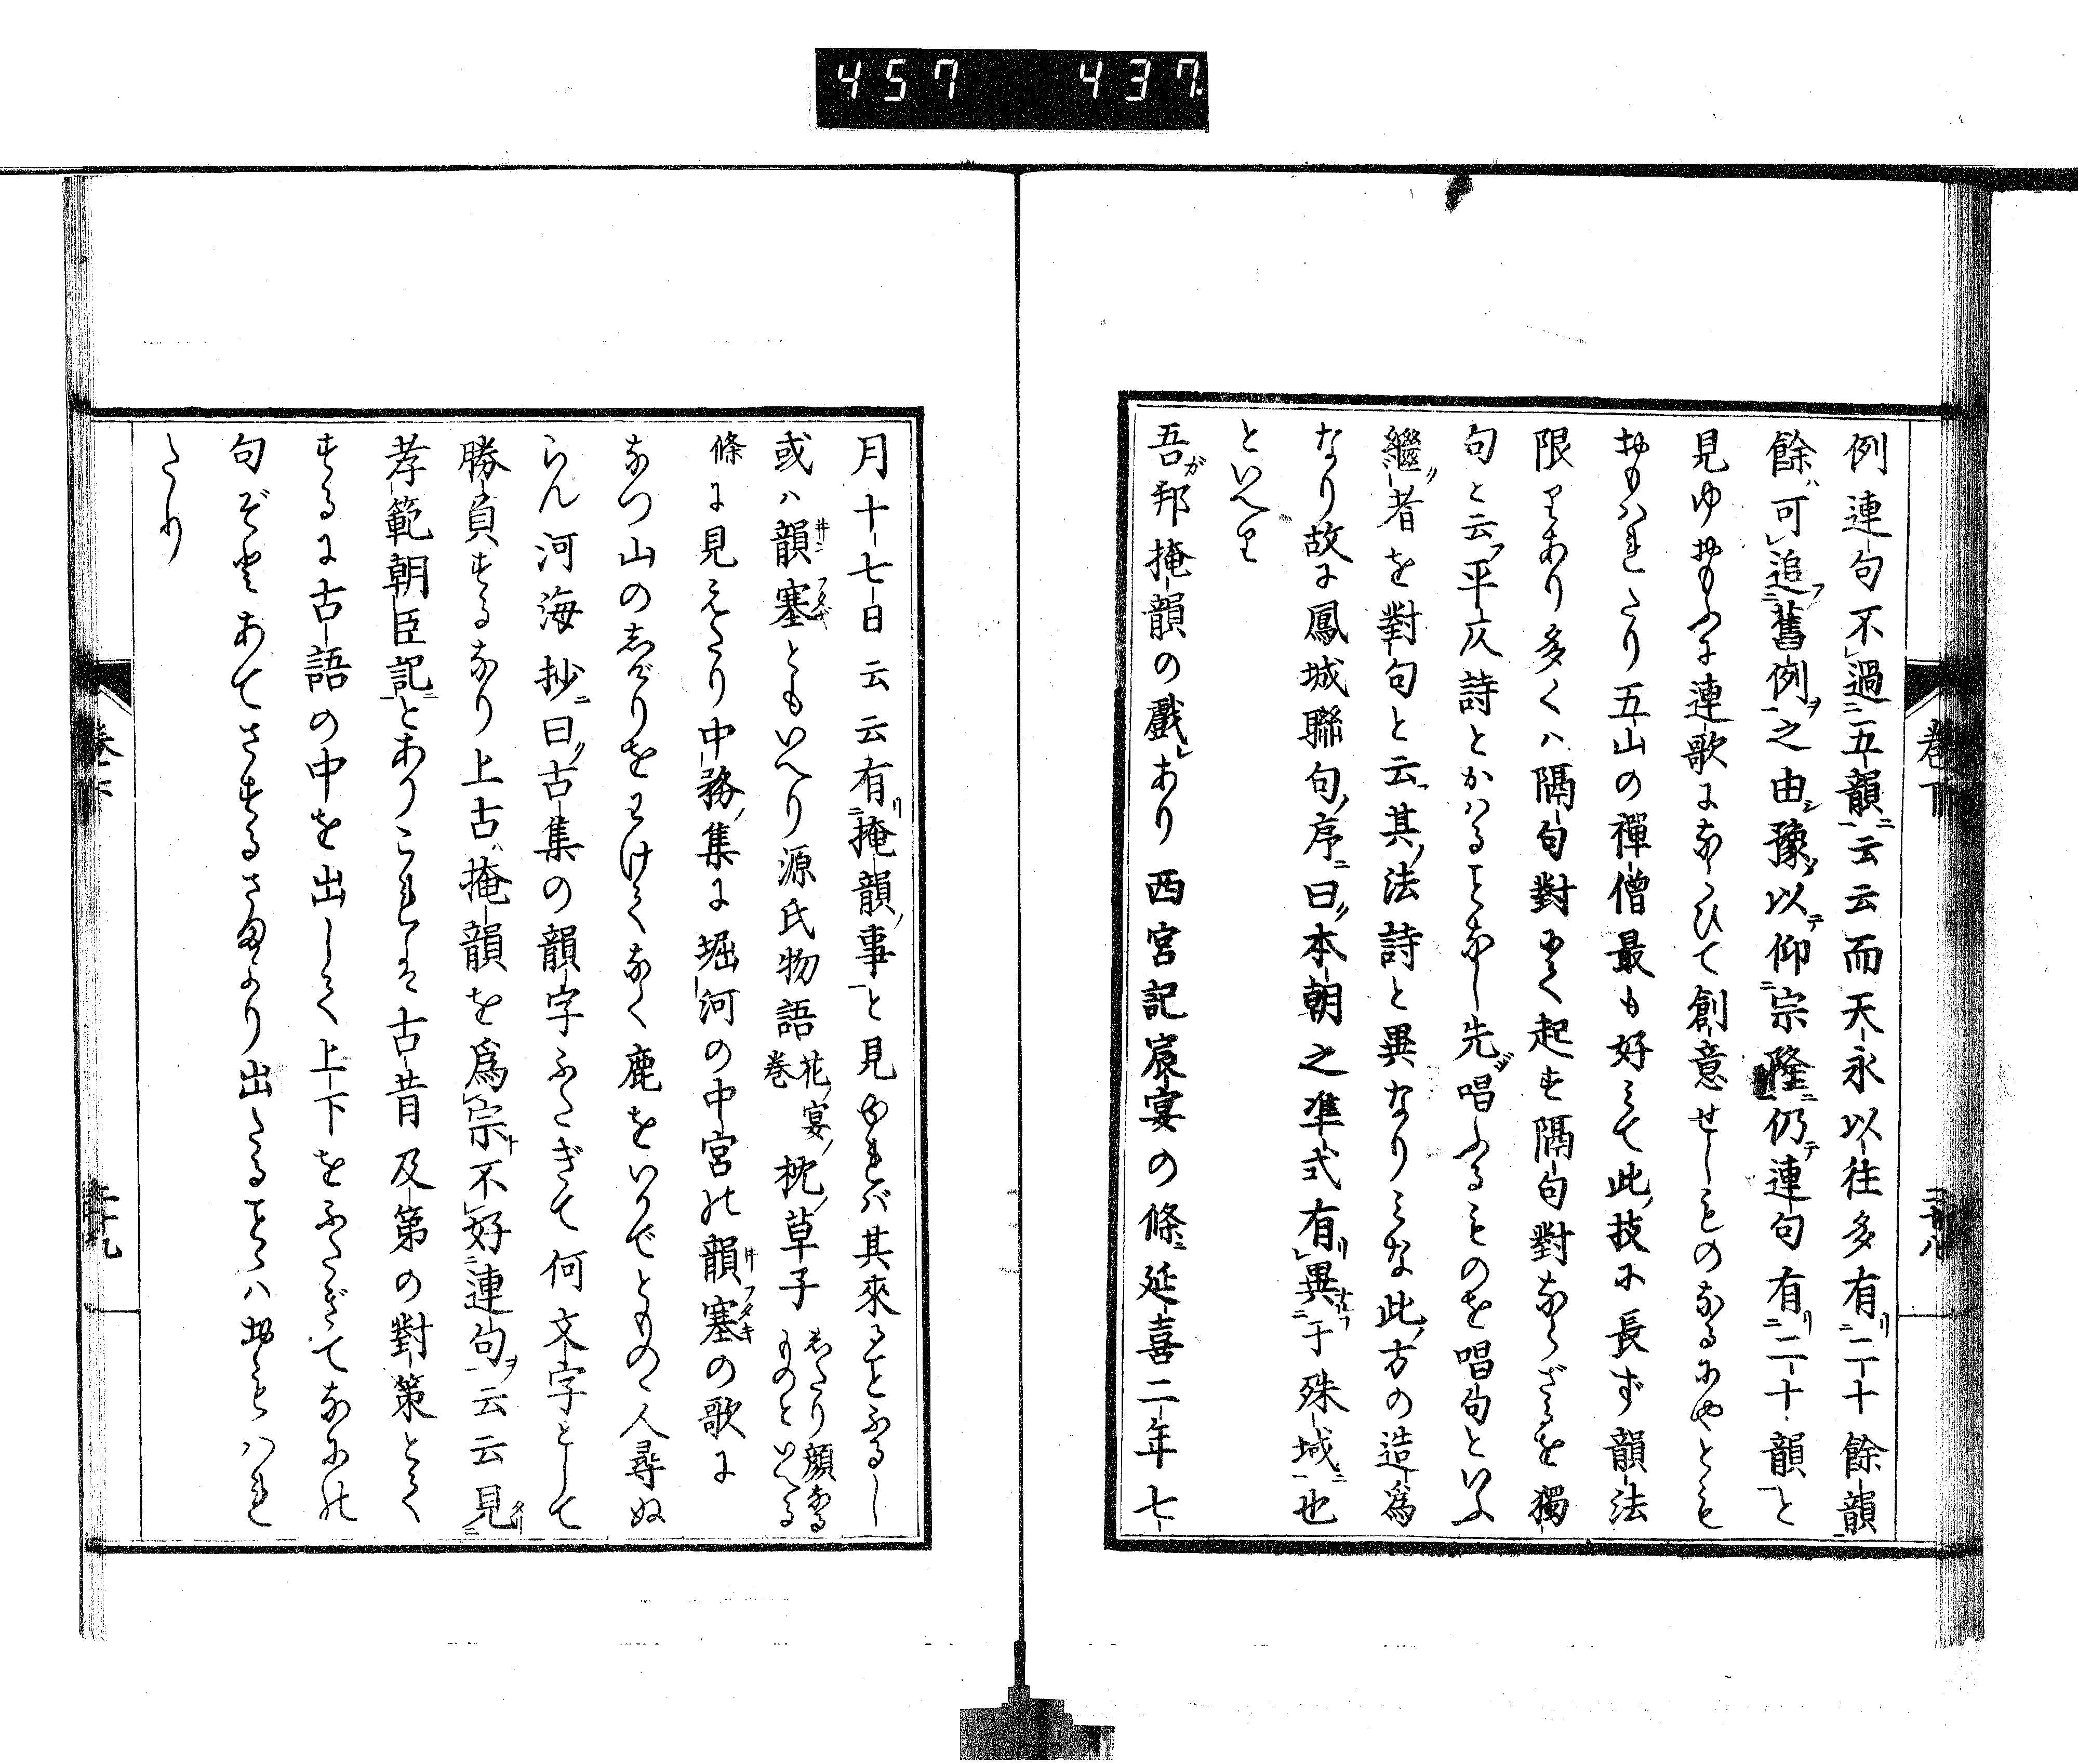 457 437.
例連句不過五韻云云而天永以往多有二十餘韻
餘可追舊例之由豫以仰宗隆仍連句有二十韻と
見ゆおもふに連歌にならひて創意せしものなるにやとも
おもはれたり五山の禪僧最も好みて此技に長ず韻法
限りあり多くハ隔句對にて起す隔句對ならざるを獨
句と云平仄詩とかハることなし先唱ふるものを唱句といふ
繼者を對句と云其法詩と異なりみな此方の造爲
なり故に鳳城聯句序曰本朝之準式有異于殊域也
といへり
吾が邦掩韻の戲あり西宮記宸宴の條延喜二年七
卷下
二十八
月十七日云云有掩韻事と見ゆれバ其來ることふるし
或ハ韻塞ともいへり源氏物語花宴卷枕草子したり顔なるものといへる
條に見えたり中務集に堀河の中宮の韻塞の歌に
なつ山のしげりをわけてなく鹿をいかでともの人尋ぬ
らん河海抄曰古集の韻字ふたぎて何文字として
勝負するなり上古掩韻を爲宗不好連句云云見
孝範朝臣記とありこれは古昔及第の對策とて
するに古語の中を出して上下をふたぎてなにの
句ぞとあてさするさまより出たることハおもハれ
たり
卷下
二十九